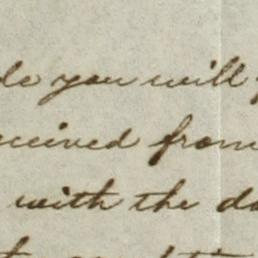 you will
eceived from
with the da